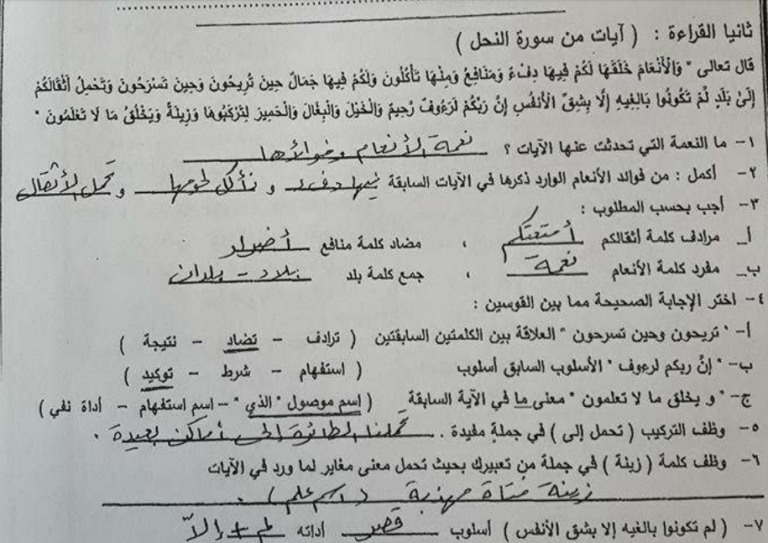 ثانيا القراءة : ( آيات من سورة النحل )
قال تعالى " وَالْأَنْعَامَ خَلَقَهَا لَكُمْ فِيهَا دِفْءٌ وَمَنَافِعُ وَمِنْهَا تَأْكُلُونَ وَلَكُمْ فِيهَا جَمَالٌ حِينَ تُرِيحُونَ وَحِينَ تَسْرَحُونَ وَتَحْمِلُ أَثْقَالَكُمْ
إِلَىٰ بَلَدٍ لَّمْ تَكُونُوا بَالِغِيهِ إِلَّا بِشِقِّ الْأَنفُسِ إِنَّ رَبَّكُمْ لَرَءُوفٌ رَّحِيمٌ وَالْخَيْلَ وَالْبِغَالَ وَالْحَمِيرَ لِتَرْكَبُوهَا وَزِينَةً وَيَخْلُقُ مَا لَا تَعْلَمُونَ "
١- ما النعمة التي تحدثت عنها الآيات ؟ نعمة الأنعام وفوائدها
٢- أكمل : من فوائد الأنعام الوارد ذكرها في الآيات السابقة فيها دفء و نأكل لحومها و تحمل الأثقال
٣- أجب بحسب المطلوب :
أ_ مرادف كلمة أثقالكم أمتعتكم ، مضاد كلمة منافع أضرار
ب_ مفرد كلمة الأنعام نعمة ، جمع كلمة بلد بلاد - بلدان
٤- اختر الإجابة الصحيحة مما بين القوسين :
أ- " تريحون وحين تسرحون " العلاقة بين الكلمتين السابقتين ( ترادف - تضاد - نتيجة )
ب- " إنَّ ربكم لرءوف " الأسلوب السابق أسلوب ( استفهام - شرط - توكيد )
ج- " و يخلق ما لا تعلمون " معنى ما في الآية السابقة ( اسم موصول " الذي " - اسم استفهام - أداة نفي )
٥- وظف التركيب ( تحمل إلى ) في جملة مفيدة . تحملنا الطائرة إلى أماكن بعيدة .
٦- وظف كلمة ( زينة ) في جملة من تعبيرك بحيث تحمل معنى مغاير لما ورد في الآيات
زينة فتاة مهذبة ( اسم علم ) .
٧- ( لم تكونوا بالغيه إلا بشق الأنفس ) أسلوب قصر أداته لم + إلّا